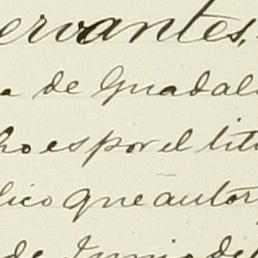 ervantes,
a de Guadal
ho es por el tit
lico que autor
de Junio de